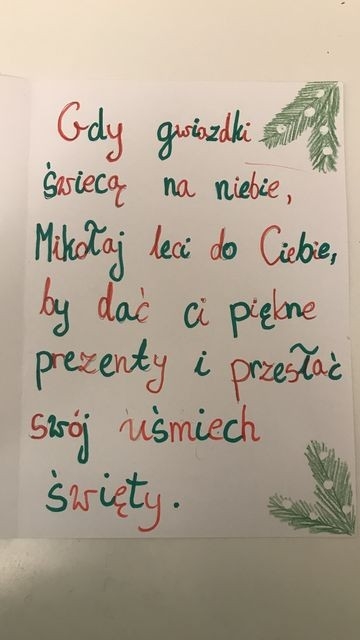 Gdy gwiazdki
świecą na niebie,
Mikołaj leci do Ciebie,
by dać ci piękne
prezenty i przesłać
swój uśmiech
święty.